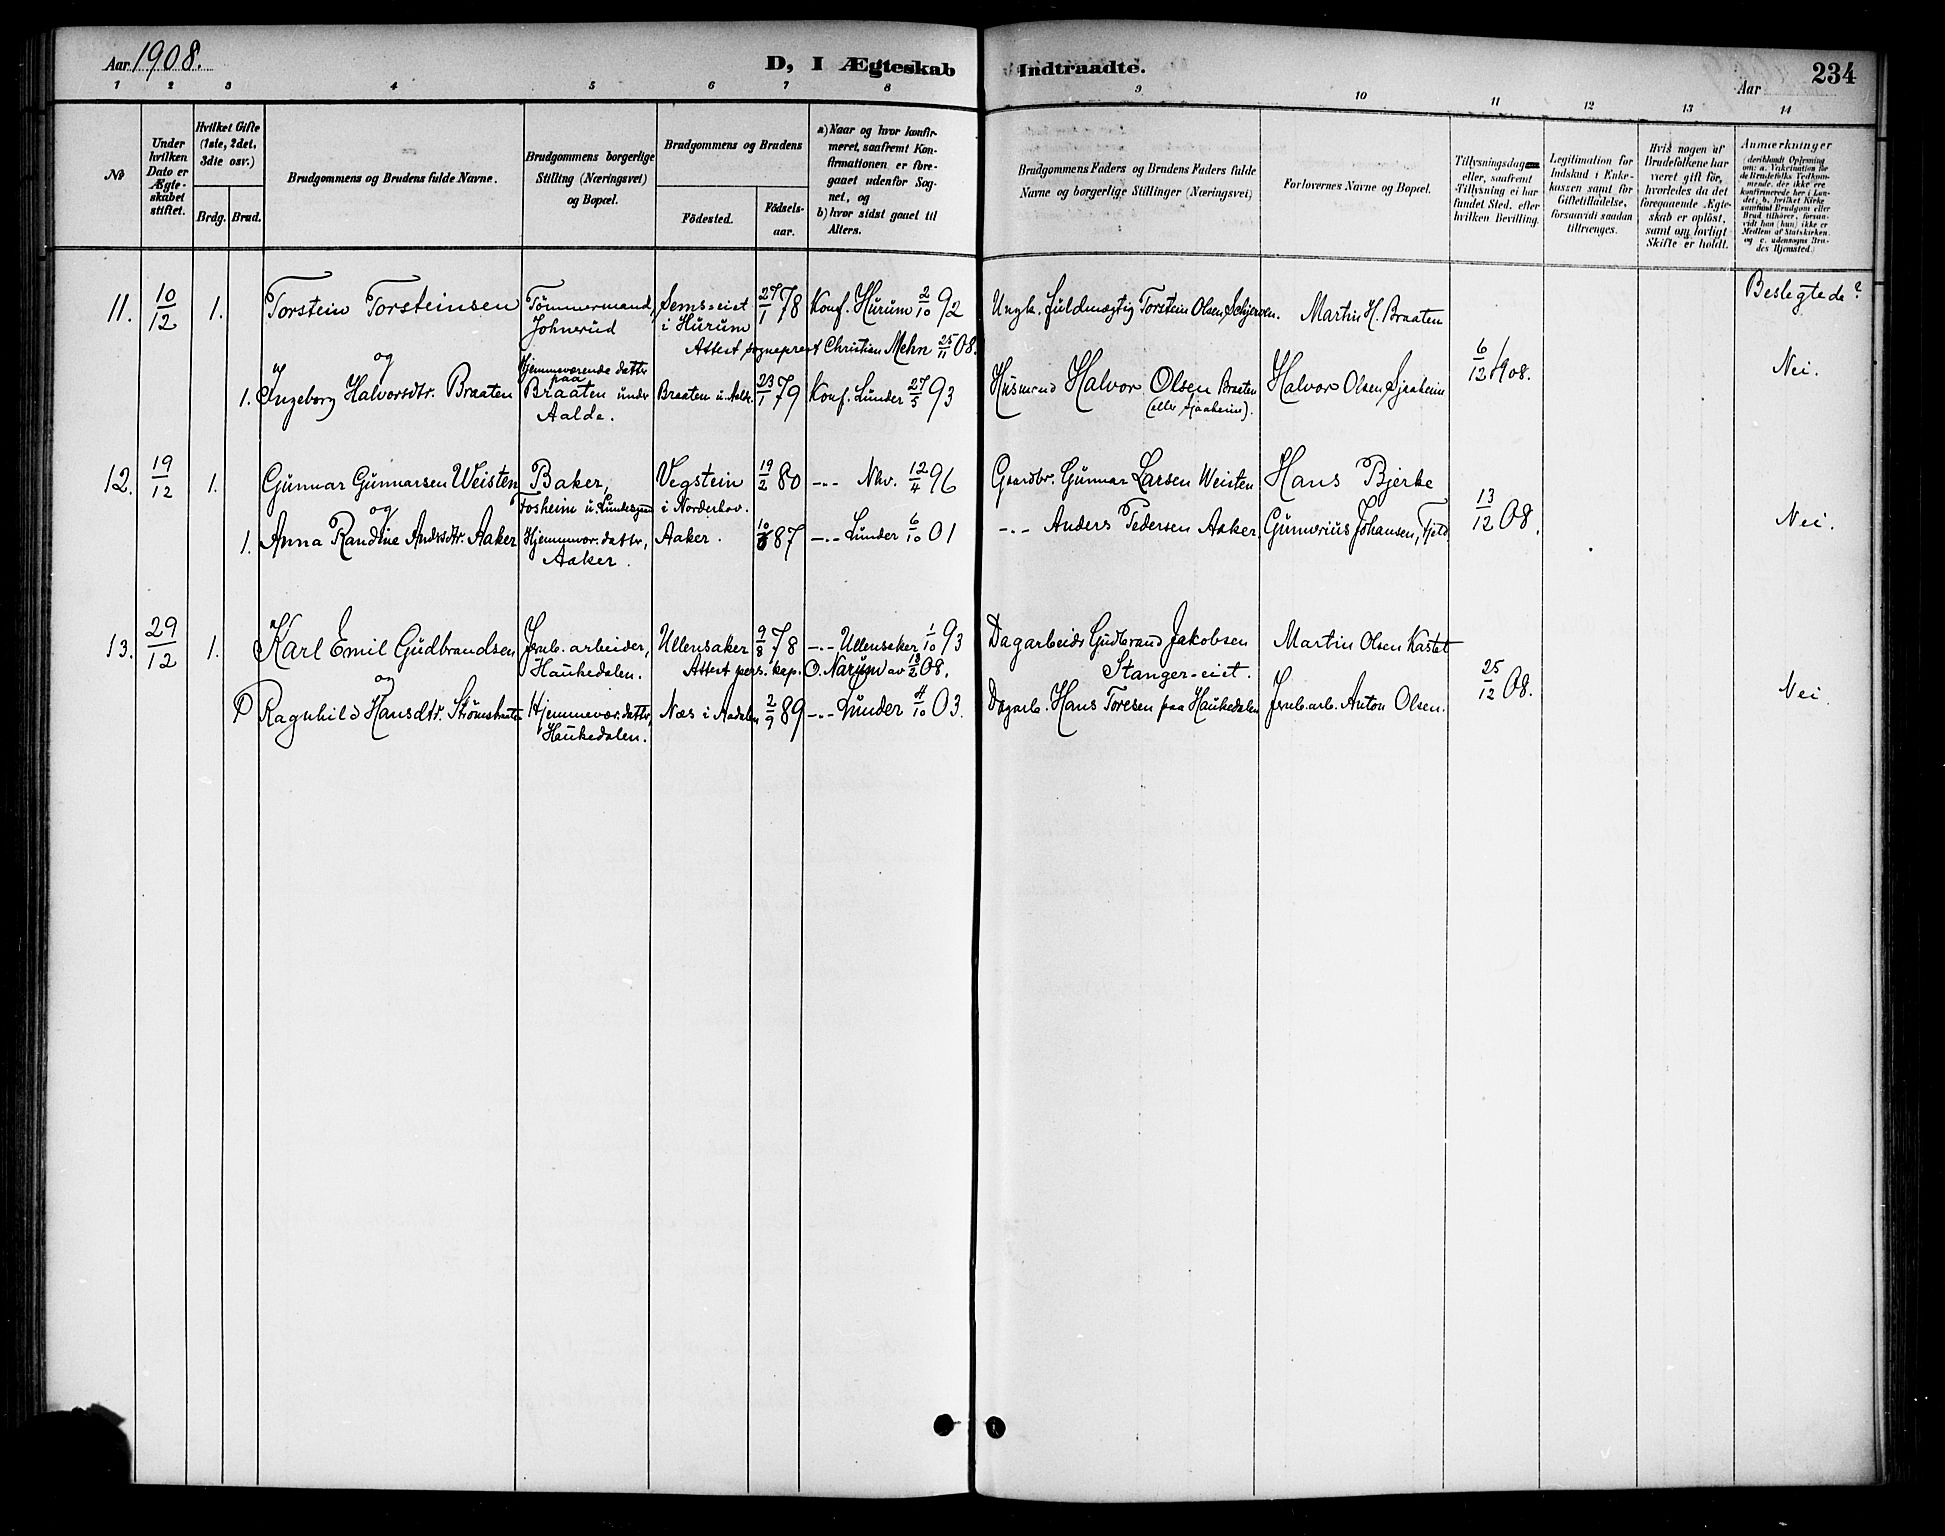 Aar 1908.
D, I Ægteskab Indtraadte.
Aar
234
1 2 3 4 5 6 7 8 9 10 11 12 13 14
No
Under hvilken Dato er Ægteskabet stiftet.
Hvilket Gifte (1ste, 2det, 3die osv.)
Brdg. Brud.
Brudgommens og Brudens fulde Navne.
Brudgommens borgerlige Stilling (Næringsvei) og Bopæl.
Brudgommens og Brudens
Födested.
Födselsaar.
a) Naar og hvor konfirmeret, saafremt Konfirmationen er foregaaet udenfor Sognet, og
b) hvor sidst gaaet til Alters.
Brudgommens Faders og Brudens Faders fulde Navne og borgerlige Stillinger (Næringsvei)
Forlovernes Navne og Bopæl.
Tillysningsdag eller, saafremt Tillysning ei har fundet Sted, efter hvilken Bevilling.
Legitimation for Indskud i Enkekassen samt for Giftetilladelse, forsaavidt saadan tiltrænges.
Hvis nogen af Brudefolkene har været gift för, hvorledes da det foregaaende Ægteskab er oplöst, samt om lovligt Skifte er holdt.
Anmærkninger (deriblandt Oplysning om: a. Vakcination for de Brudefolks Vedkommende, der ikke ere konfirmerede her i Landet; b. hvilket Kirkesamfund Brudgom eller Brud tilhører, forsaavidt han (hun) ikke er Medlem af Statskirken, og c. udensogns Brudes Hjemsted.)
Beslegtede?
11. 10/12 1. Torstein Torsteinsen Tømmermand, Sems-eiet 27/1 78 Konf. Hurum 2/10 92 Ungk. fuldmægtig Torstein Olsen Martin H. Braaten
Johnerud i Hurum
og Attest sogneprest Christian Mehn 25/11 08.
Hjemmeværende datter paa
1. Ingeborg Halvorsdtr. Braaten Braaten under Braaten u. Aald. 23/1 79 Konf. Lunder 27/5 93 Husmand Halvor Olsen Braaten Halvor Olsen Sjaaheim 6/12 1908. Nei.
Aalde. (eller Sjaaheim).
12. 19/12 1. Gunnar Gunnarsen Weisten Baker, Vegstein 19/2 80 -"- Nhv. 12/4 96 Gaardbr. Gunnar Larsen Weisten Hans Bjerke
og Fosheim u. i Norderhov. 13/12 08.
1. Anna Randine Andrsdtr. Aaker Hjemmevær. datter, Aaker. 87 -"- Lunder 6/10 01 -"- Anders Pedersen Aaker Gunvrius Johansen, Fjeld Nei.
Aaker.
13. 29/12 1. Karl Emil Gudbrandsen Jernb. arbeider, Ullensaker 9/8 78 -"- Ullensaker 1/10 93 Dagarbeider Gudbrand Jakobsen Martin Olsen Kastet
og Haukedalen. Attest pers. kap. O. Narum av 13/2 08. Stanger-eiet. 25/12 08.
Ragnhild Hansdtr. Strømsbraaten Hjemmevær. datter, Næs i Aadalen 2/9 89 -"- Lunder 4/10 03. Dagarb. Hans Toresen paa Haukedalen Jernb. arb. Anton Olsen. Nei
Haukedalen.